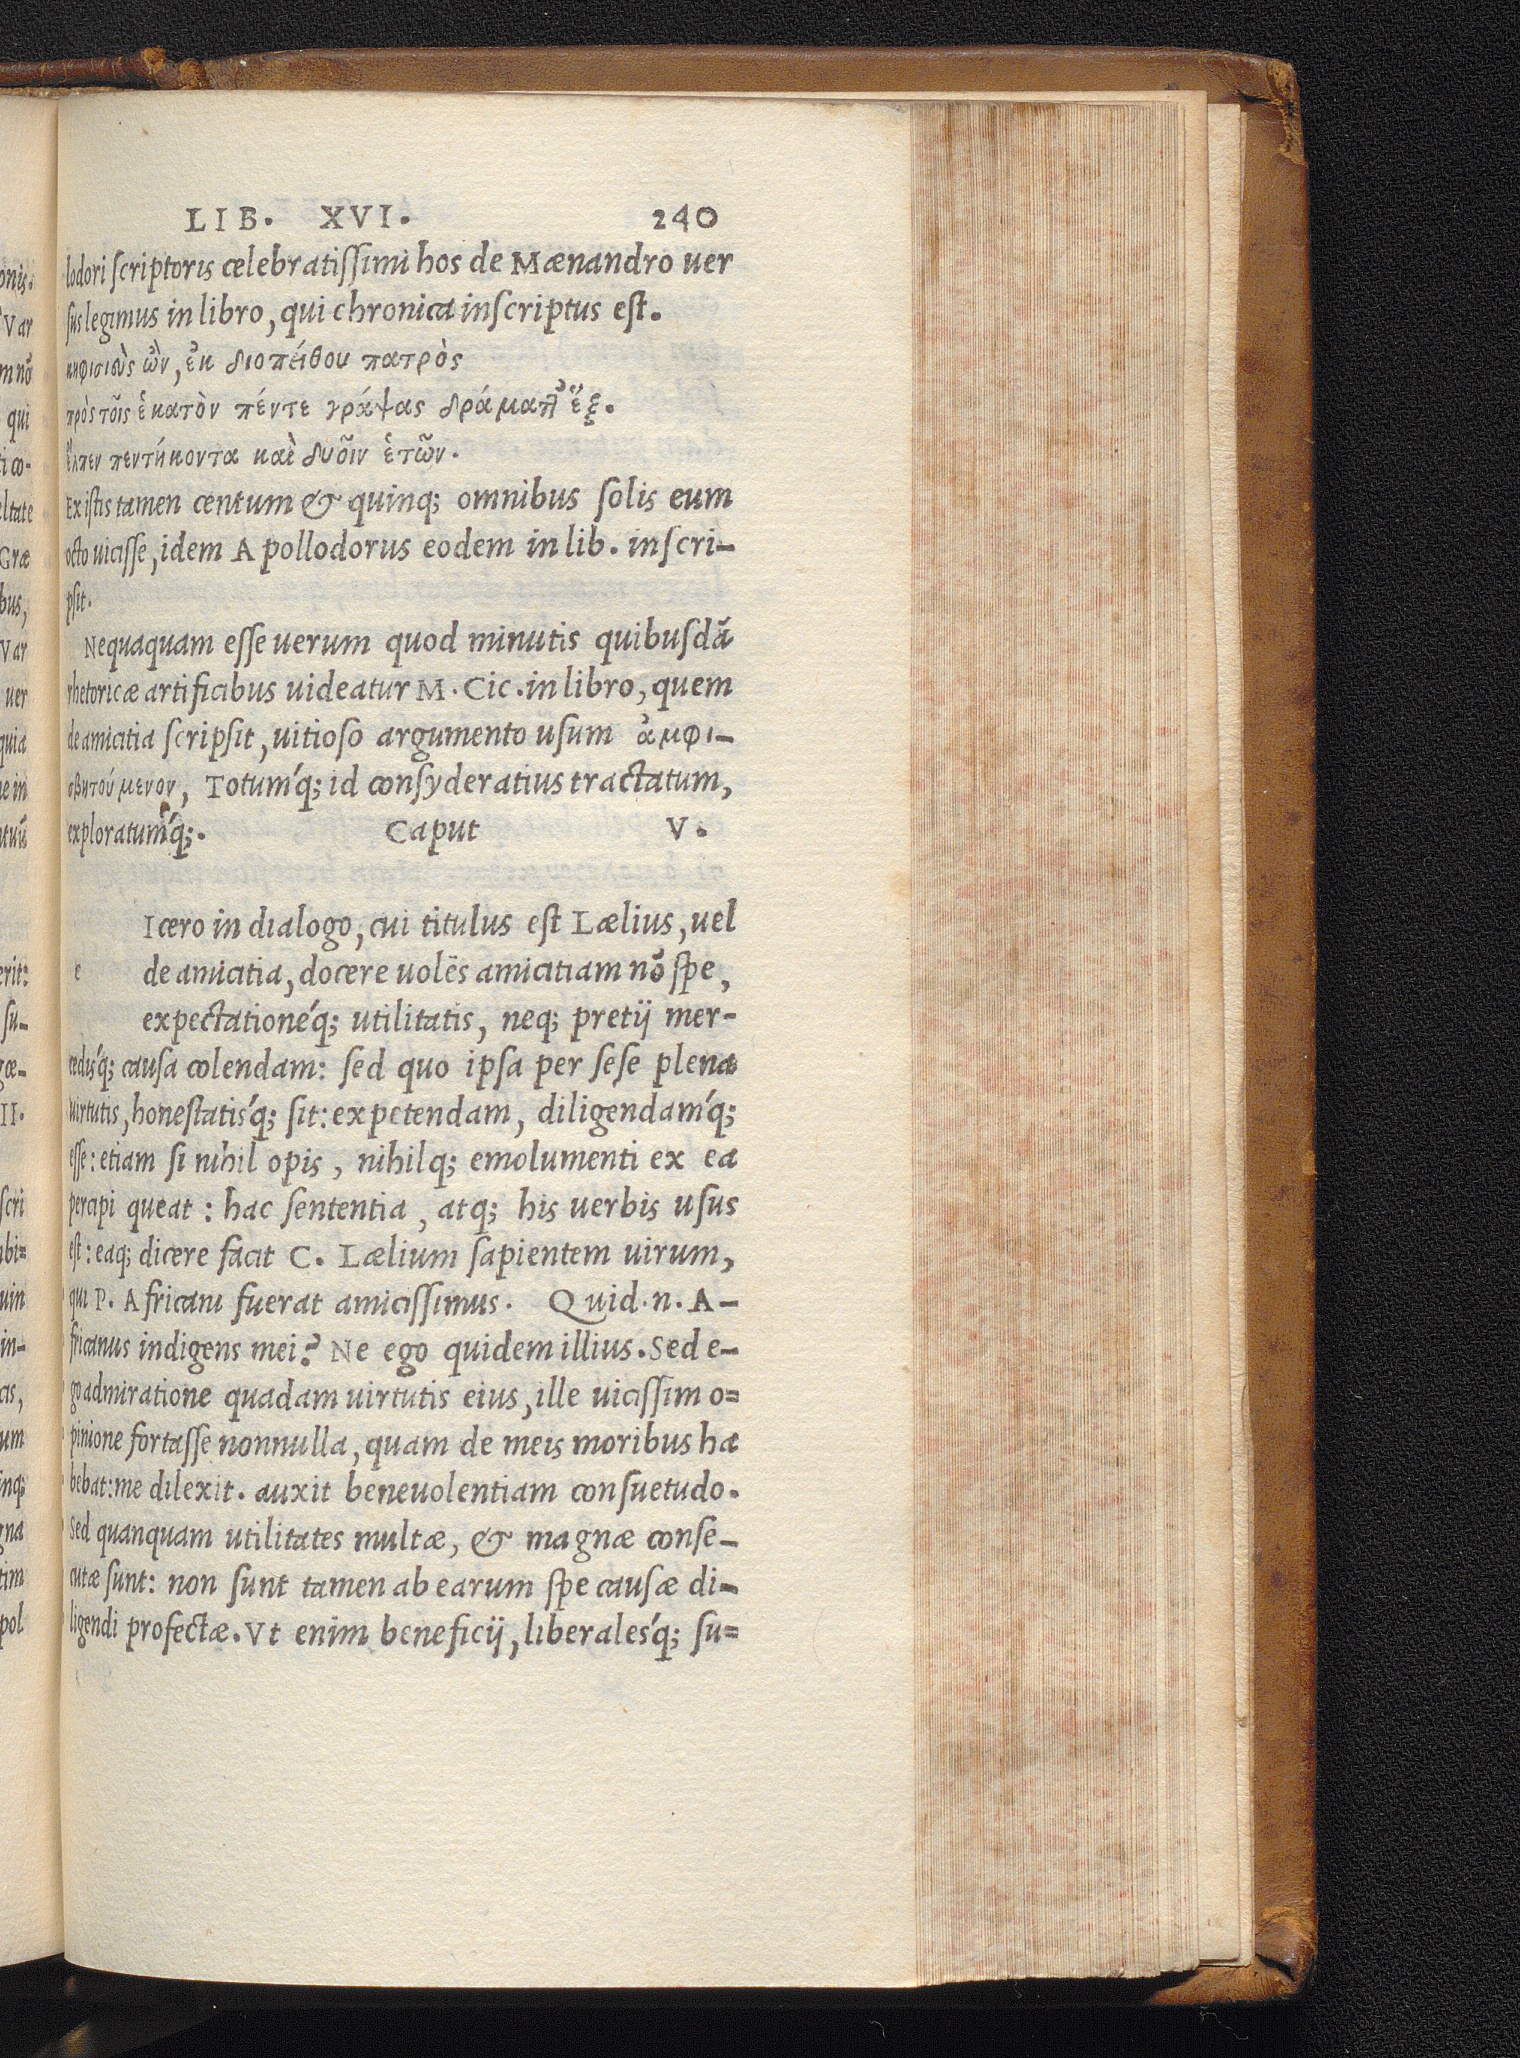 LIB. XVI. 240
lodori scriptoris celebratissimi hos de Mænandro uer
sus legimus in libro, qui chronica inscriptus est.
κηφισιοὺς ὢν, ἐκ διοπείθου πατρὸς
πρὸς τοῖς ἑκατὸν πέντε γράψας δράματα ἕξ.
ἔλιπεν πεντήκοντα καὶ δυοῖν ἐτῶν.
Ex istis tamen centum & quinq; omnibus solis eum
octo uicisse, idem Apollodorus eodem in lib. inscri-
psit.
Nequaquam esse uerum quod minutis quibusdā
rhetoricæ artificibus uideatur M. Cic. in libro, quem
de amicitia scripsit, uitioso argumento usum ἀμφι-
σβητούμενον, Totumq́; id consyderatius tractatum,
exploratumq́;. Caput V.
Icero in dialogo, cui titulus est Lælius, uel
c de amicitia, docere uolēs amicitiam nō spe,
expectationeq́; utilitatis, neq; pretij mer-
cedisq́; causa colendam: sed quo ipsa per sese plena
uirtutis, honestatisq́; sit: expetendam, diligendamq́;
esse: etiam si nihil opis, nihilq; emolumenti ex ea
percipi queat: hac sententia, atq; his uerbis usus
est: eaq; dicere facit C. Lælium sapientem uirum,
qui P. Africani fuerat amicissimus. Quid.n.A-
fricanus indigens mei? Ne ego quidem illius. Sed e-
go admiratione quadam uirtutis eius, ille uicissim o=
pinione fortasse nonnulla, quam de meis moribus ha
bebat: me dilexit. auxit beneuolentiam consuetudo.
Sed quanquam utilitates multæ, & magnæ conse-
cutæ sunt: non sunt tamen ab earum spe causæ di-
ligendi profectæ. Vt enim beneficij, liberalesq́; su=